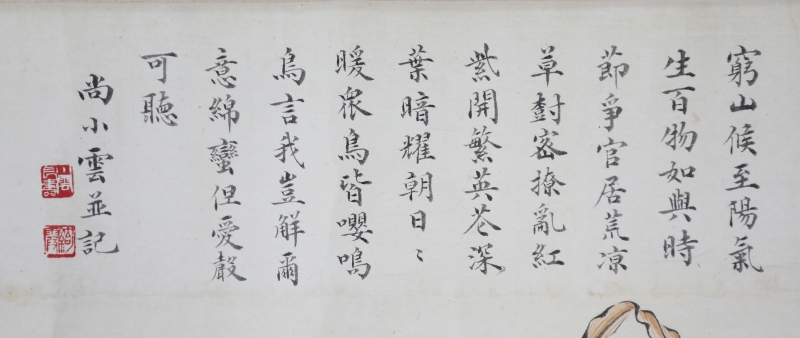 窮山候至陽氣
生百物如與時
節爭官居荒凉
草樹密撩亂紅
紫開繁英花深
葉暗耀朝日〻
暖眾鳥皆嚶鳴
鳥言我豈解爾
意綿蠻但愛聲
可聽
尚小雲並記